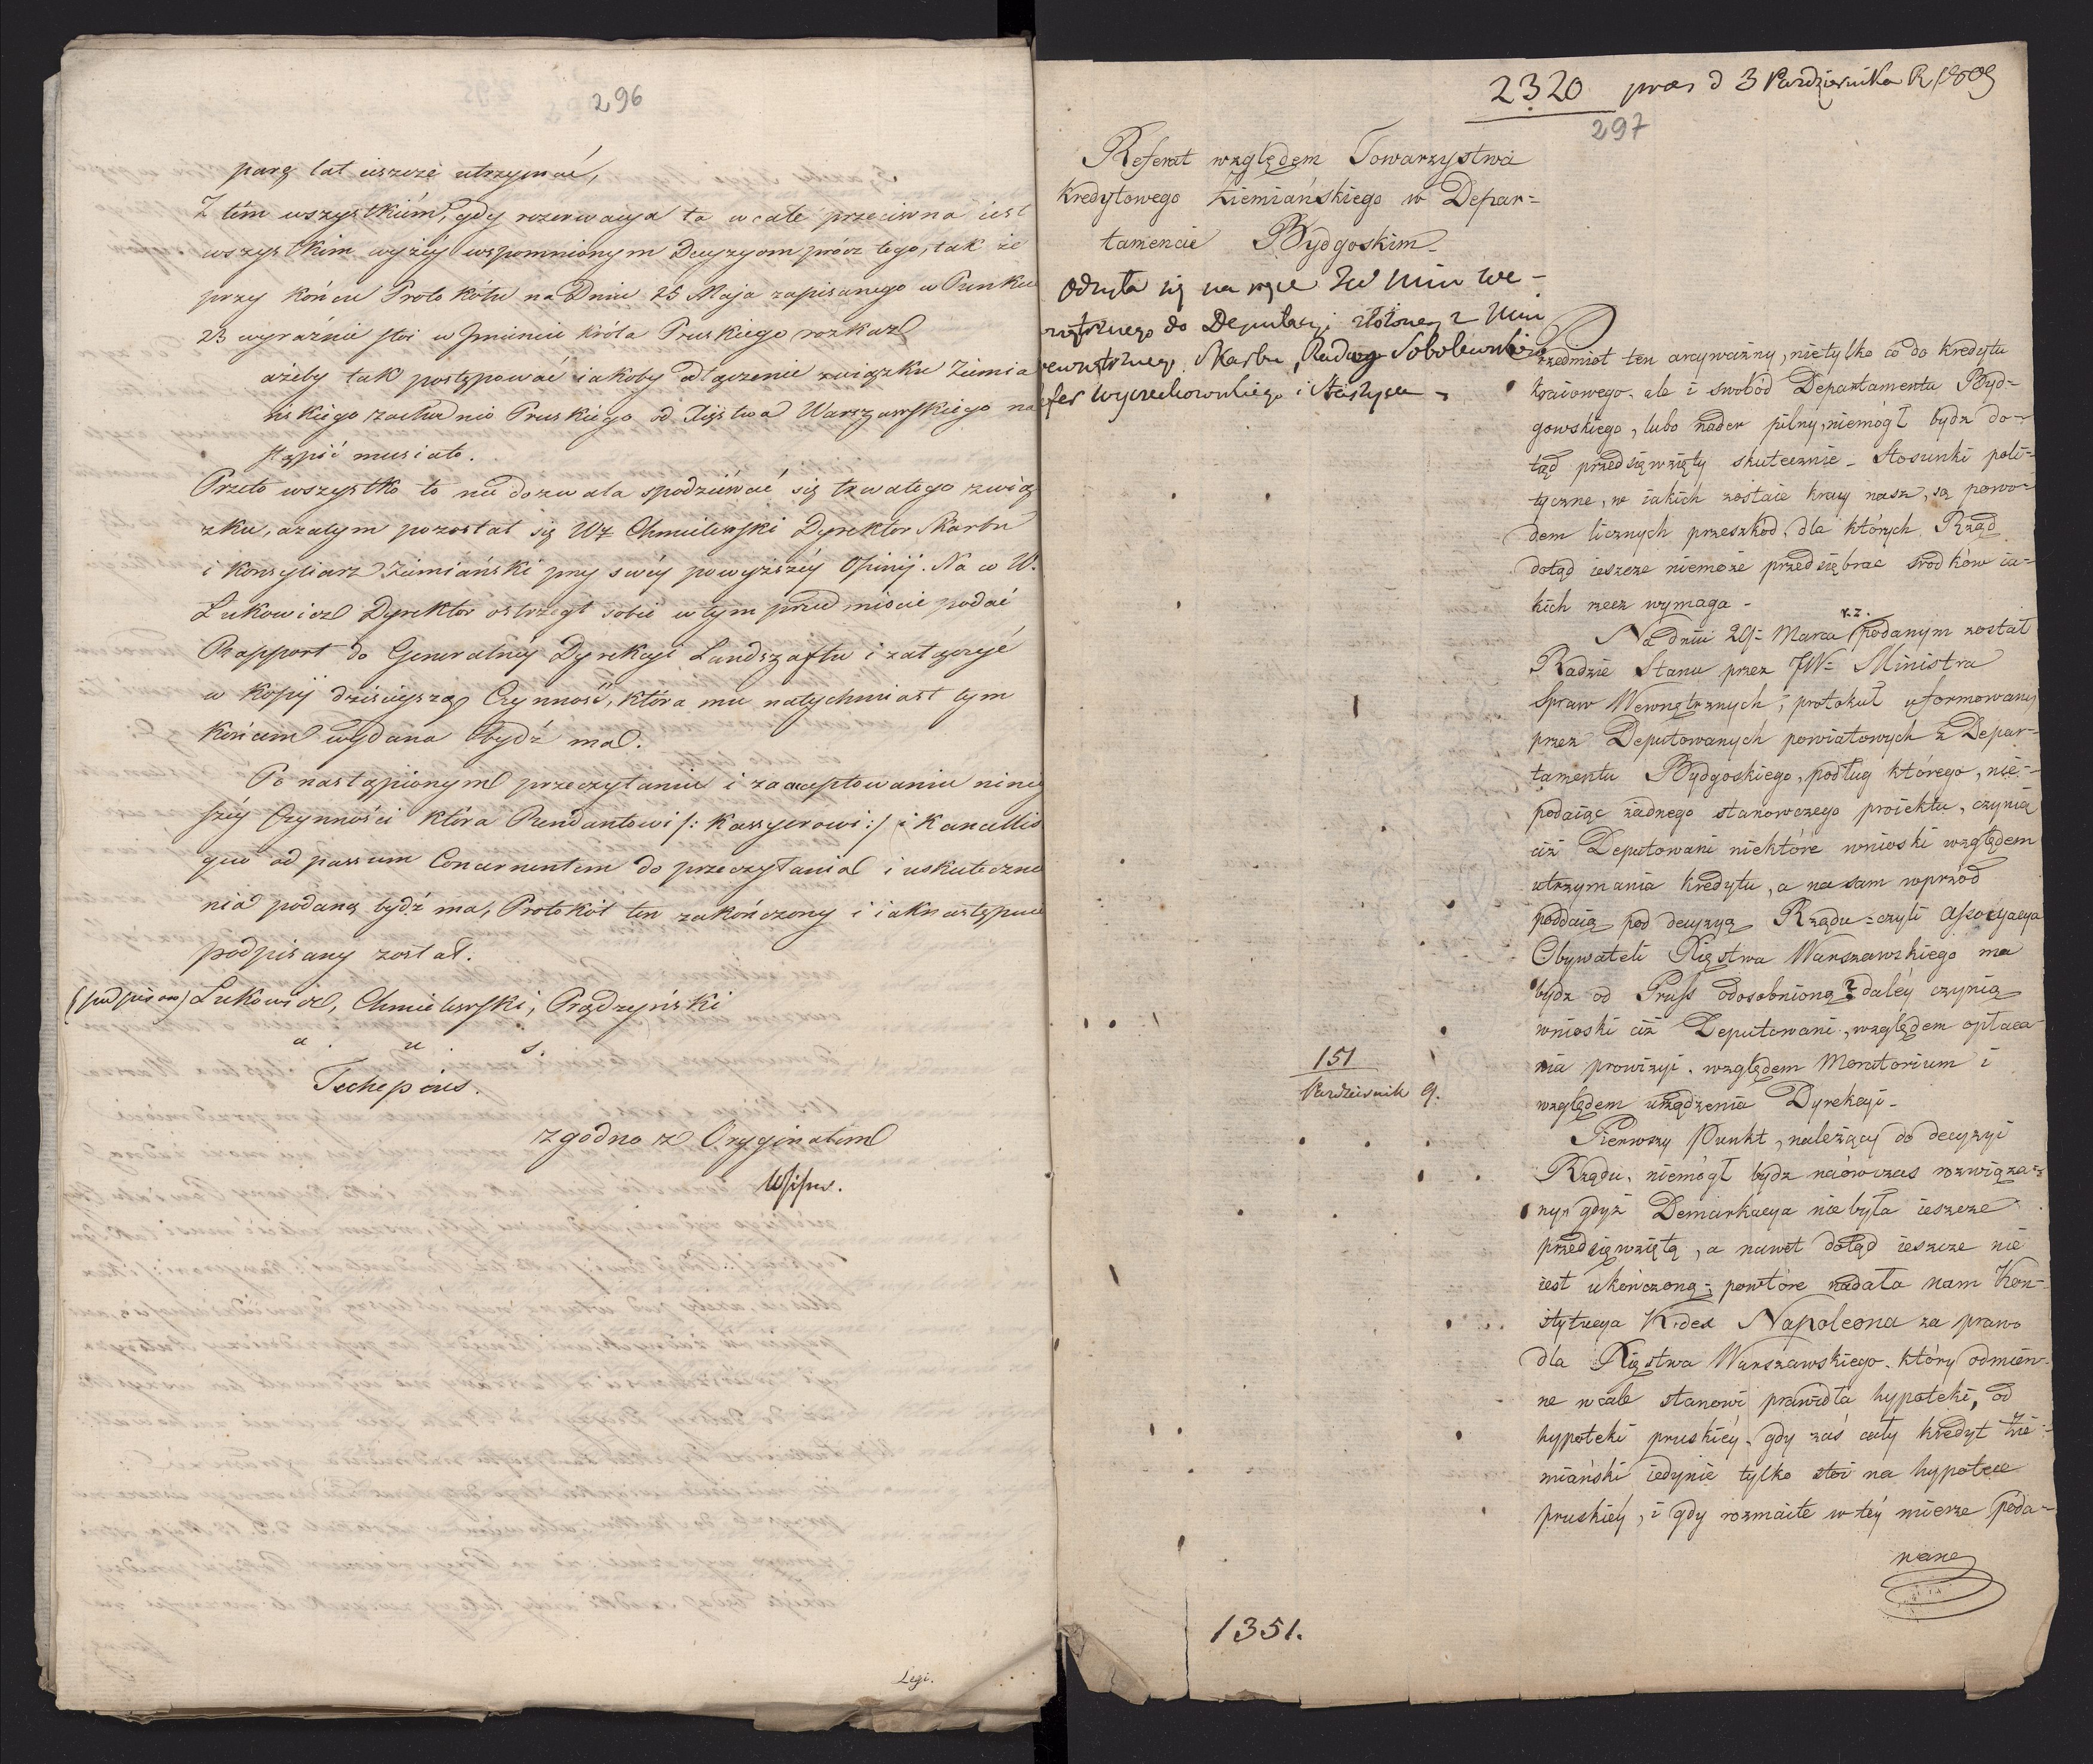 296
parę lat ieszcze utrzymać,
Z tém wszystkiém, gdy rezerwacya ta wcale przeciwna iest
wszystkim wyżéy wspomnionym Decyzyom prócz tego, tak że
przy końcu Protokółu na Dniu 25 Maja zapisanego w Punkcie
23 wyraźnie stoi w Imieniu Króla Pruskiego rozkaz
ażeby tak postępować iakoby odłączenie związku Ziemia
nskiego zachodnio Pruskiego od Xięstwa Warszawskiego na
stąpić musiało.
Przeto wszystko to nie dozwala spodziewać się trwałego zwią
zku, azatym pozostał się Wż Chmielewski Dyrektor Skarbu
i Konsyliarz Ziemiański przy swéy powyższéy Opinij. Na co W.
Lukowicz Dyrektor ostrzegł sobie w tym przedmiocie podać
Rapport do Generalnéy Dyrekcyi Landszaftu i załączyć
w Kopij dzisieyszą Czynność, która mu natychmiast tym
końcem wydana bydź ma.
Po nastąpionym przeczytaniu i zaacceptowaniu niniey
széy Czynności która Rendantowi /: Kassyerowi :/ i Kancellis
quo ad passum Concernentem do przeczytania i uskuteczne
nia podaną bydź ma, Protokół ten zakończony i iak następuie
podpisany został.
(podpisano) Lukowicz, Chmielewski, Prądzyński
a. u. s.
Techepius.
zgodno z Oryginałem
Legi.
2320 praes d 3 Pazdziernika R 1809
297
Referat względem Towarzystwa
Kredytowego Ziemiańskiego w Depar=
tamencie Bydgoskim
Odsyła się na ręce JW Min We=
wnętrznego do Deputacyi złożoney z Min
wewnętrznego, Skarbu, Radcy Sobolewskiego
Wyczechowskiego i Staszyca
Przedmiot ten arcyważny, nietylko co do kredytu
kraiowego, ale i swobód Departamentu Byd=
gowskiego, lubo nader pilny, niemógł bydz do=
tąd przedsięwzięty skutecznie. Stosunki poli=
tyczne, w iakich zostaie kray nasz, są powo=
dem licznych przeszkod, dla których Rząd
dotąd ieszcze niemoże przedsiębrac srodków ia=
kich rzecz wymaga.
Na dniu 29= Marca r.z. podanym został
Radzie Stanu przez JW= Ministra
Spraw Wewnętrznych, protokuł uformowany
przez Deputowanych powiatowych z Depar=
tamentu Bydgoskiego, podług którego, nie=
podaiąc żadnego stanowczego proiektu, czynią
ciż Deputowani niektóre wnioski względem
utrzymania kredytu, a na sam wprzód
poddaią pod decyzyą Rządu = czyli Assocyacya
Obywateli Xięstwa Warszawskiego ma
bydz od Pruss odosobnioną? daléy czynią
wnioski ciż Deputowani, względem opłaca=
nia prowizyi, względem Moratorium i
względem urządzenia Dyrekcyi.
151
Pazdziernik 9.
Pierwszy Punkt, należący do decyzyi
Rządu, niemógł bydz naówczas rozwiąza=
ny, gdyż Demarkacya niebyła ieszcze
przedsięwziętą, a nawet dotąd ieszcze nie
iest ukończoną; powtóre nadała nam Kon=
stytucya Kodex Napoleona za prawo
dla Xięstwa Warszawskiego, który odmien=
ne wcale stanowi prawidła hypoteki, od
hypoteki pruskiéy. gdy zaś cały kredyt Zie=
miański iedynie tylko stoi na hypotece
pruskiéy, i gdy rozmaite w téy mierze poda=
wane
1351.